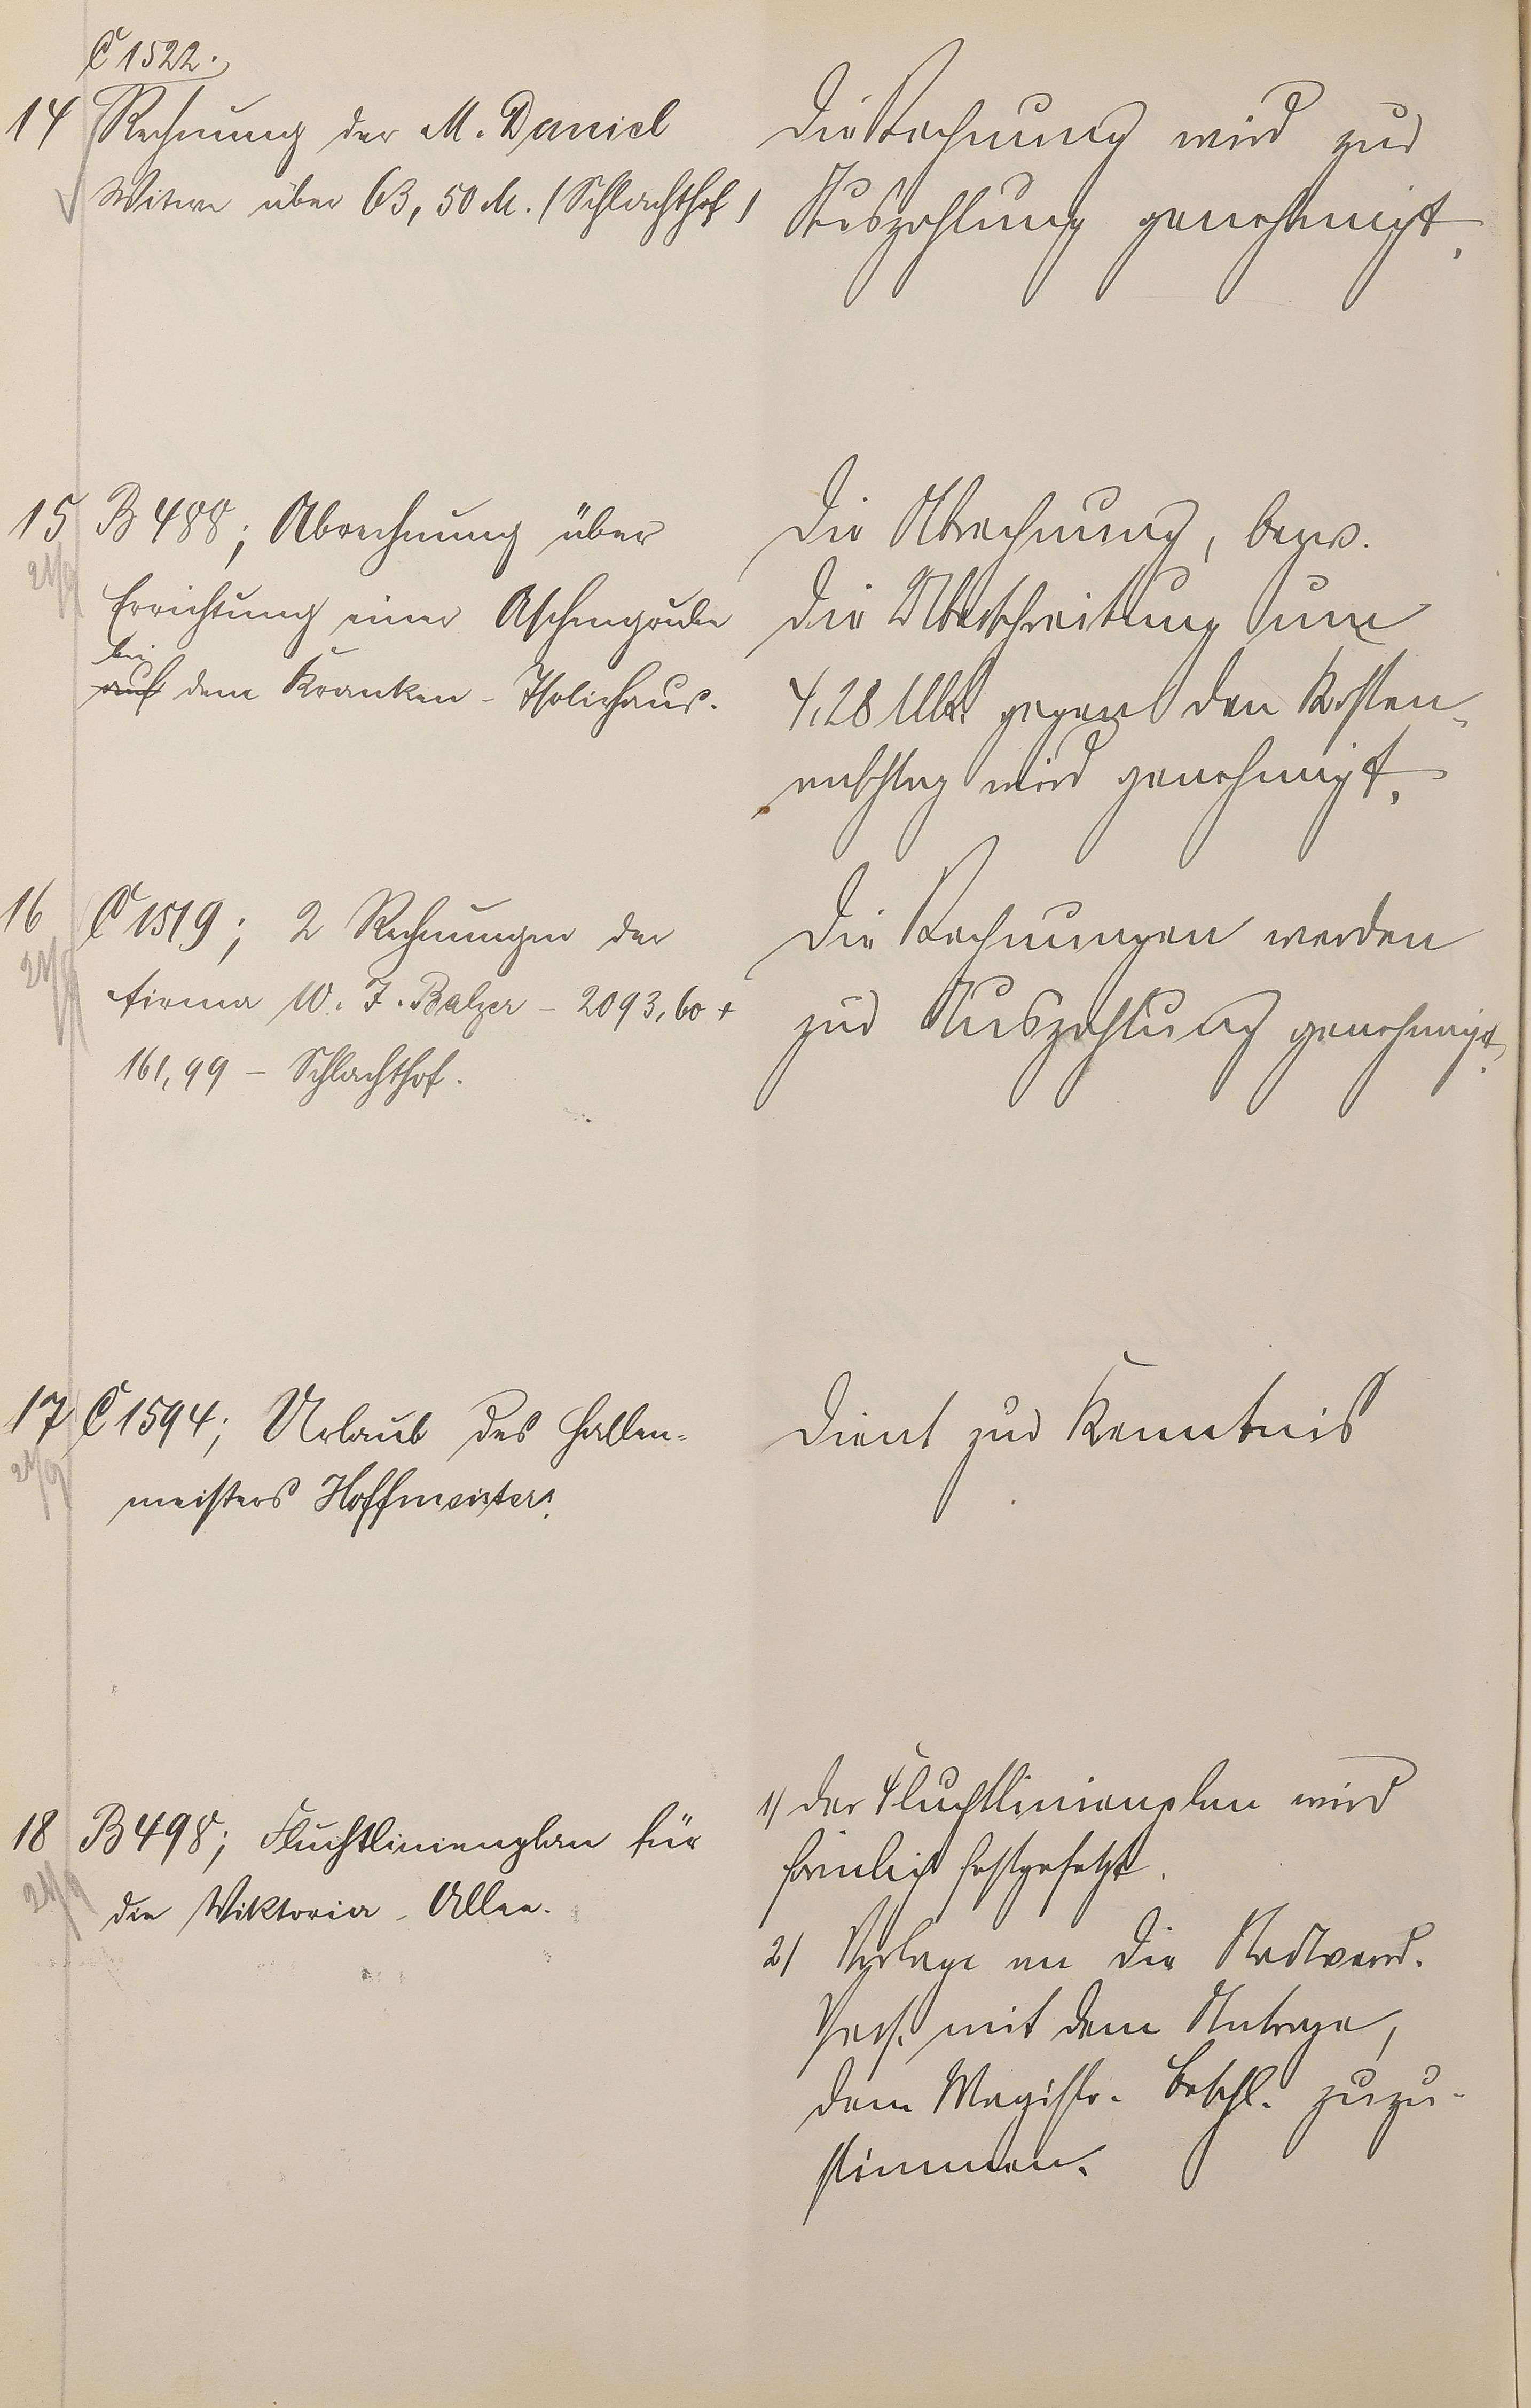 C 1522.
14 Rechnung der M. Daniel
Witwe über 63,50 M. (Schlachthof)
Die Rechnung wird zur
Auszahlung genehmigt.
15 B 488; Abrechnung über
21/9
Errichtung einer Aschengrube
bei
auf dem Kranken-Isolierhaus.
Die Abrechnung, bezw.
die Überschreitung um
4,28 Mk. gegen den Kosten-
anschlag wird genehmigt.
16 C 1519; 2 Rechnungen der
21/9
Firma W. F. Balzer - 2093,60 +
161,99 - Schlachthof.
Die Rechnungen werden
zur Auszahlung genehmigt.
17 C 1594; Urlaub des Hallen-
21/9
meisters Hoffmeister.
Dient zur Kenntnis
18 B 498; Fluchtlinienplan für
21/9
die Viktoria-Allee.
1) Der Fluchtlinienplan wird
förmlich festgesetzt.
2) Vorlage an die Stadtverord.
Vers. mit dem Antrage,
dem Magistr. Beschl. zuzu-
stimmen.